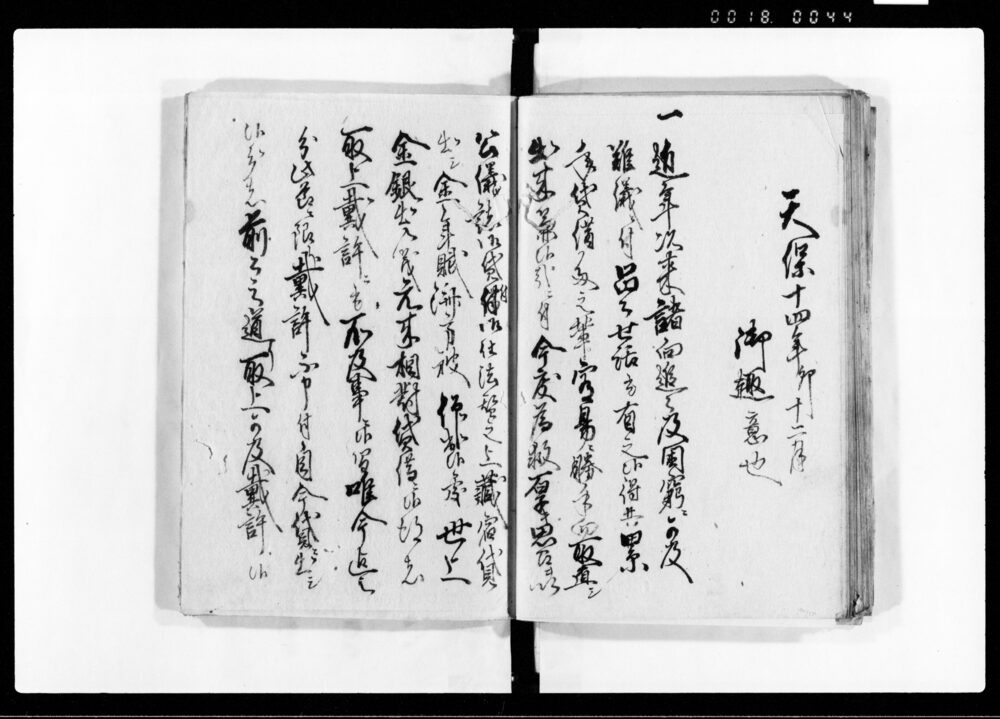 0018. 0044
天保十四年卯十二月
御趣意也
一 近年以来諸向追々及困窮ニ可及
難儀付品々世話も有之候得共累
年貸借多之輩容易ニ勝手向取直シ
出来兼候ニ付今度為救
公儀諸御貸附御仕法替之上蔵宿貸
出シ金年賦済方被仰出候処世上
金銀出入者元来相対貸借
取上裁許ニ不及事ニ候得共唯今迄之
分此節ニ限裁許不申付自今貸出シ
候分者前々之通取上可及裁許候